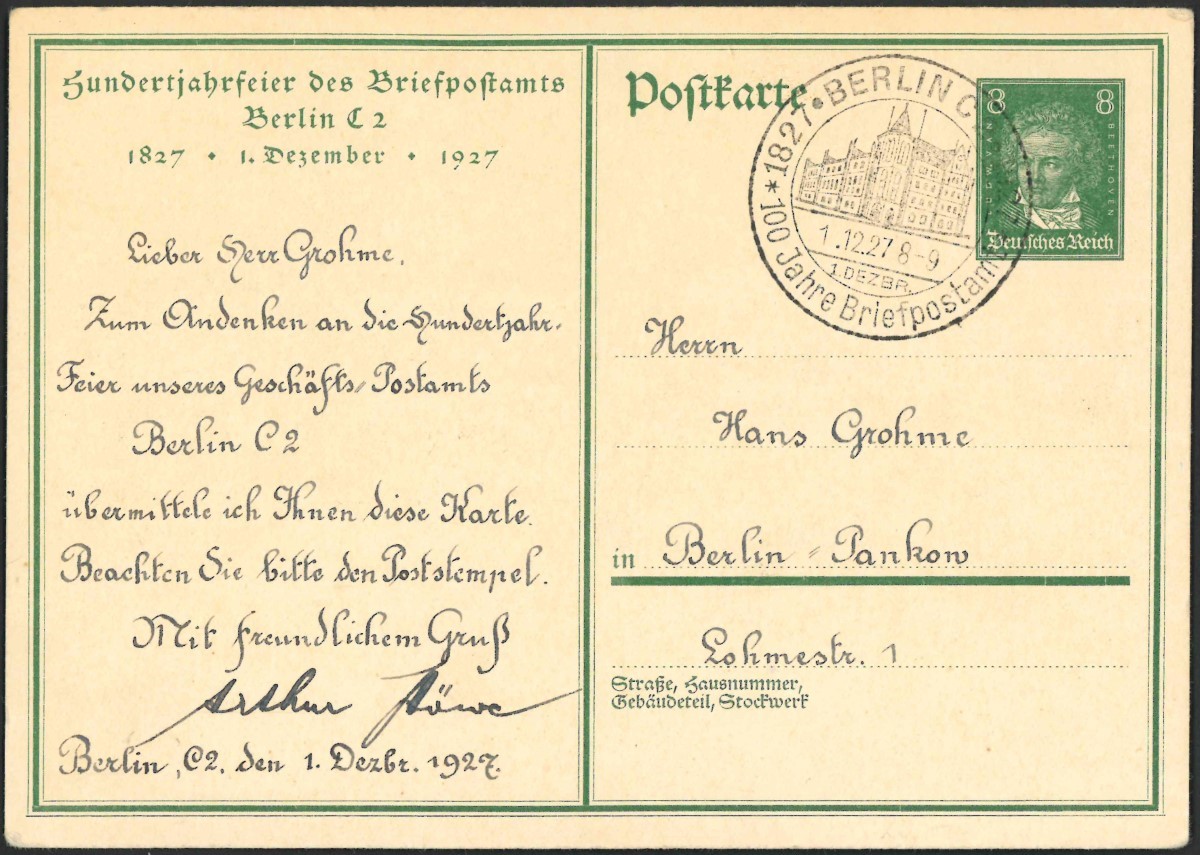 Hundertjahrfeier des Briefpostamts
Berlin C 2
1827 • 1. Dezember • 1927
Lieber Herr Grohme,
Zum Andenken an die Hundertjahr-
Feier unseres Geschäfts-Postamts
Berlin C 2
übermittele ich Ihnen diese Karte.
Beachten Sie bitte den Poststempel.
Mit freundlichem Gruß
Arthur
Berlin, C2, den 1. Dezbr. 1927.
Postkarte
* 1827 • BERLIN C
1.12.27 8-9
1. DEZBR.
100 Jahre Briefpostamt
8 8
LUDWIG VAN
BEETHOVEN
Deutsches Reich
Herrn
Hans Grohme
in Berlin-Pankow
Lohmestr. 1
Straße, Hausnummer,
Gebäudeteil, Stockwerk